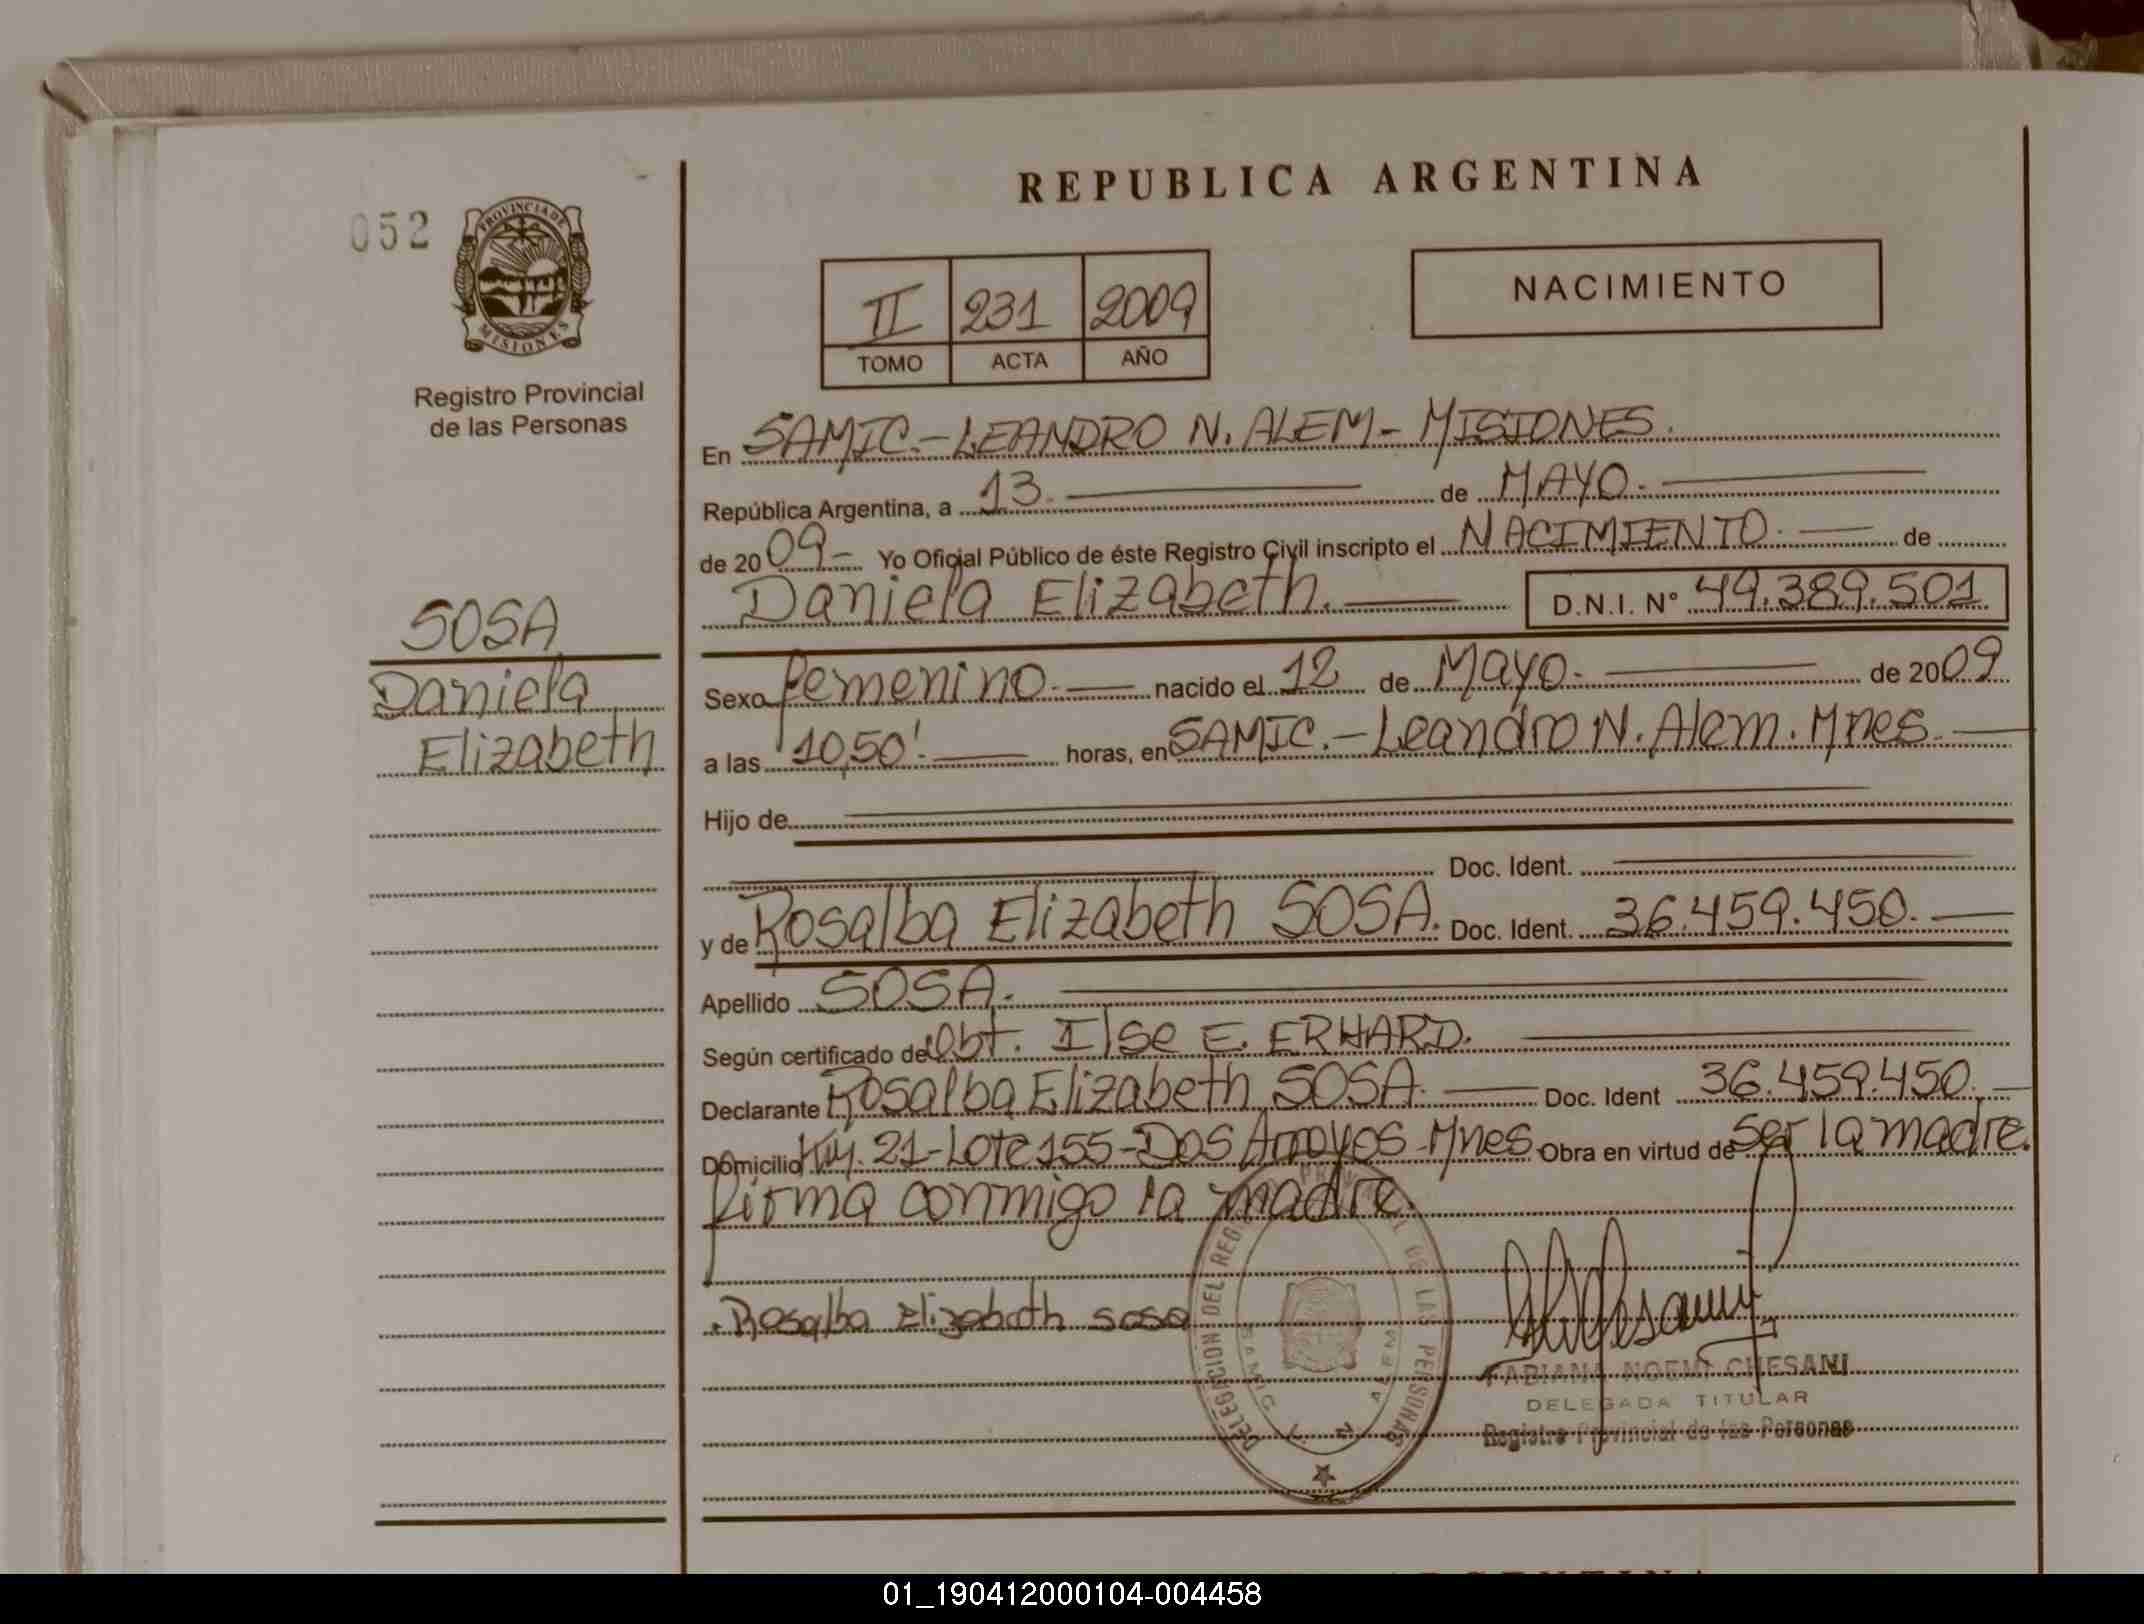 REPUBLICA ARGENTINA
052
PROVINCIA DE
MISIONES
Registro Provincial
de las Personas
II 231 2009
TOMO ACTA AÑO
NACIMIENTO
SOSA
Daniela
Elizabeth
En SAMIC.-LEANDRO N. ALEM- MISIONES.
República Argentina, a 13. de MAYO.
de 2009- Yo Oficial Público de éste Registro Civil inscripto el NACIMIENTO. de
Daniela Elizabeth. D.N.I. N° 49.389.501
Sexo femenino. nacido el 12 de Mayo. de 2009
a las 10,50'. horas, en SAMIC.-Leandro N. Alem. Mnes.
Hijo de
Doc. Ident.
y de Rosalba Elizabeth SOSA. Doc. Ident. 36.459.450.
Apellido SOSA.
Según certificado de Obt. Ilse E. ERHARD.
Declarante Rosalba Elizabeth SOSA. Doc. Ident 36.459.450.
Domicilio Km. 21-Lote 155-Dos Arroyos-Mnes. Obra en virtud de ser la madre.
firma conmigo la madre.
Rosalba Elizabeth sosa
DELEGACION DEL REG PROVINCIAL DE LAS PERSONAS
SAMIC L. N. ALEM
FABIANA NOEMI CHESANI
DELEGADA TITULAR
Registro Provincial de las Personas
ARGENTINA
01_190412000104-004458